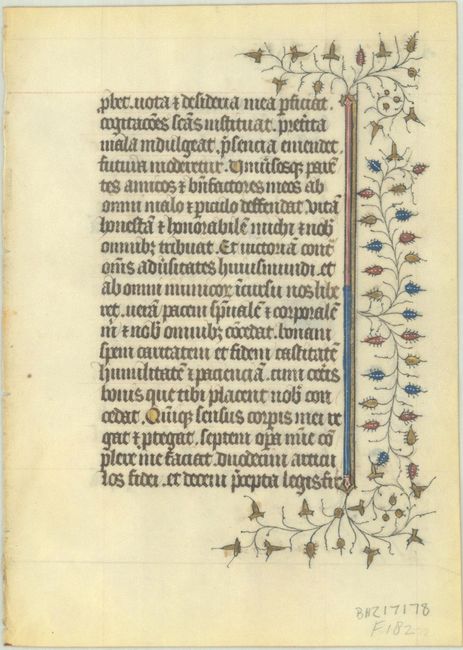 p̄bet. uota ⁊ desideria mea p̄ficiat.
cogitacōes sc̄as instituat. pret̄ita
mala indulgeat. p̄sencia emendet.
futura moderetur. Omnīosq; parē
tes amicos ⁊ bn̄factores meos ab
omni malo ⁊ piculo deffendat. vitā
honestā ⁊ honorabilē michi ⁊ nob̄
omnibꝫ tribuat. Et uictoriā cont̄
om̄s adūsitates huius mūdi. et
ab omni inimicoꝝ īcursu nos libe
ret. uerā pacem sp̄ualē ⁊ corporalē
m̄ ⁊ nob̄ omnibꝫ cōcedat. bonam
spem caritatem et fidem castitatē
humilitatē ⁊ pacienciā. cum cet̄is
bonis que tibi placent nob̄ con
cedat. Quīq; sensus corp̄is mei re
gat ⁊ p̄tegat. septem op̄a mīe cō
plere me faciat. duodecim articu
los fidei. et decem p̄cepta legis fir
BHZ17178
F.182